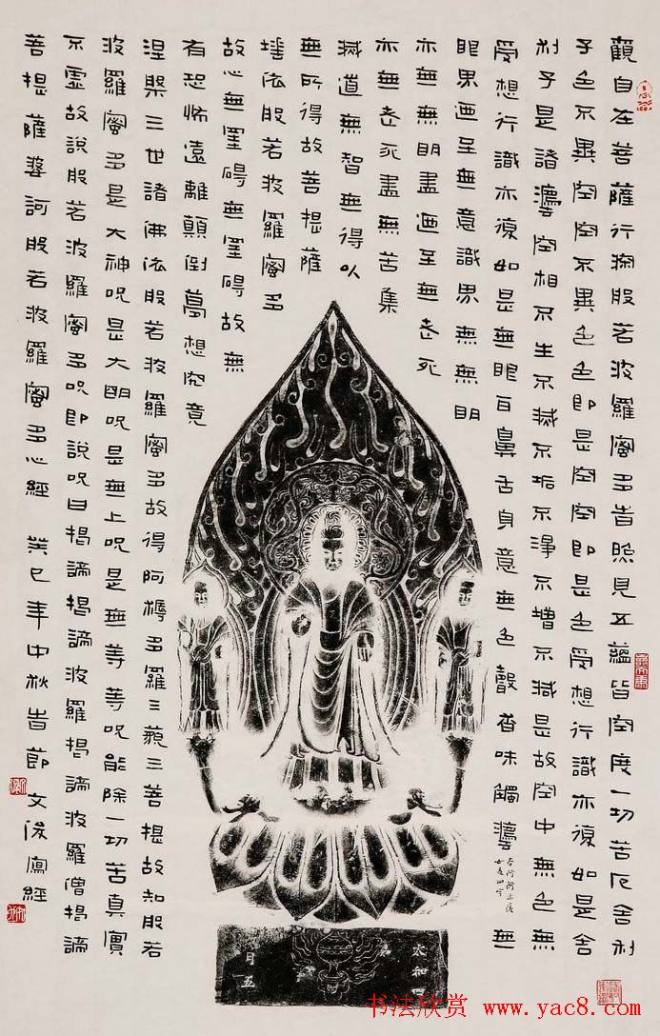 觀自在菩薩行深般若波羅蜜多時照見五蘊皆空度一切苦厄舍利
子色不異空空不異色色即是空空即是色受想行識亦復如是舍
利子是諸灋空相不生不滅不垢不淨不增不減是故空中無色無
受想行識亦復如是無眼耳鼻舌身意無色聲香味觸灋無
眼界迺至無意識界無無明
亦無無明盡迺至無老死
亦無老死盡無苦集
滅道無智無得以
無所得故菩提薩
埵依般若波羅蜜多
故心無罣礙無罣礙故無
有恐怖遠離顛倒夢想究竟
涅槃三世諸佛依般若波羅蜜多故得阿耨多羅三藐三菩提故知般若
波羅蜜多是大神咒是大明咒是無上咒是無等等咒能除一切苦真實
不虛故說般若波羅蜜多咒即說咒曰揭諦揭諦波羅揭諦波羅僧揭諦
菩提薩婆訶般若波羅蜜多心經 癸巳年中秋時節 文俊寫經
太和四
月五
书法欣赏 www.yac8.com